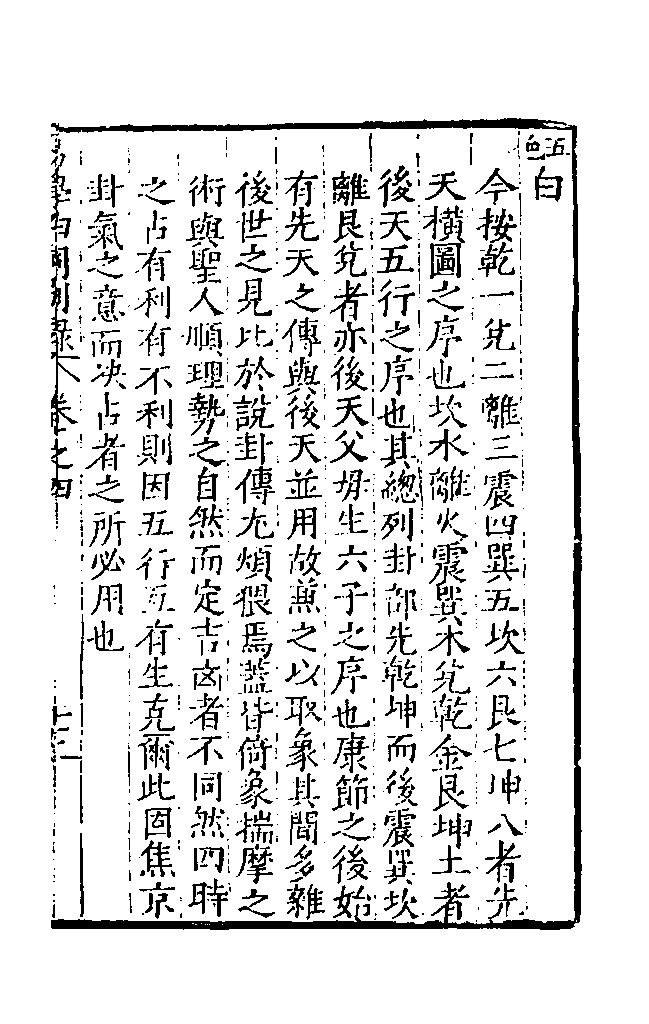 五色 白
今按乾一兌二離三震四巽五坎六艮七坤八者先
天橫圖之序也坎水離火震巽木兌乾金艮坤土者
後天五行之序也其總列卦部先乾坤而後震巽坎
離艮兌者亦後天父母生六子之序也康節之後始
有先天之傳與後天並用故兼之以取象其間多雜
後世之見比於說卦傳尤煩猥焉蓋皆倚象揣摩之
術與聖人順理勢之自然而定吉凶者不同然四時
之占有利有不利則因五行互有生克爾此固焦京
卦氣之意而决占者之所必用也
卷之四